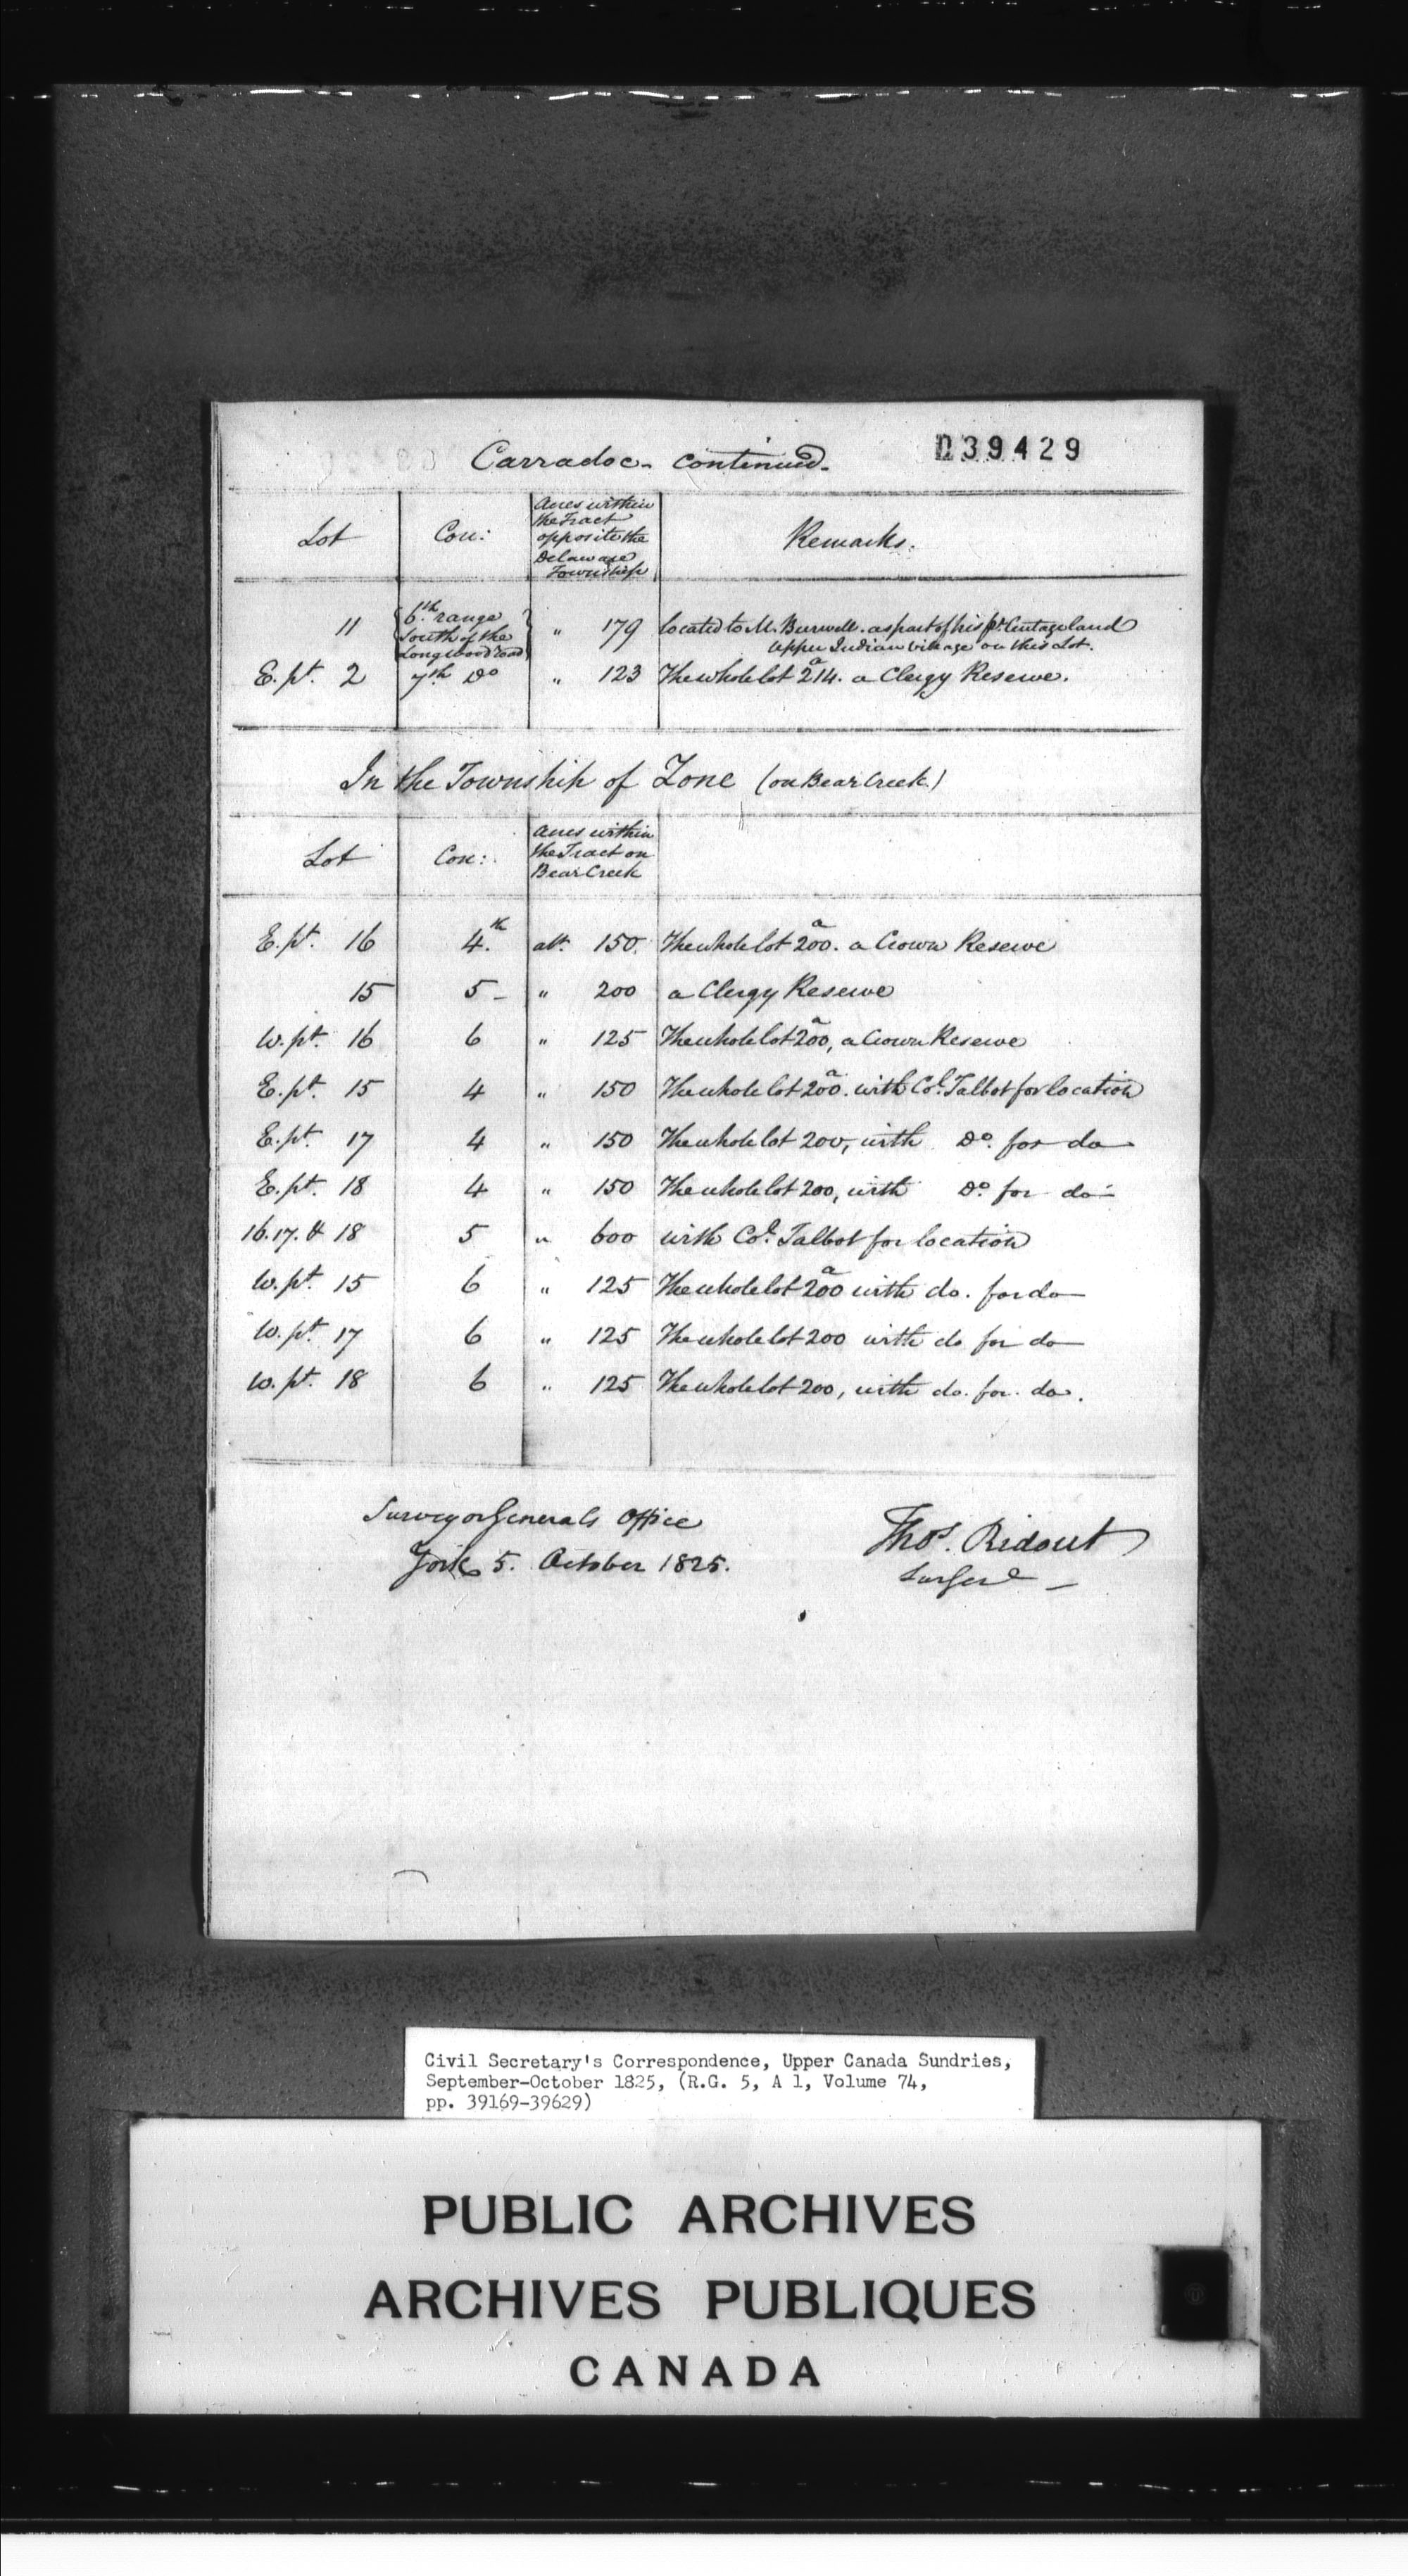 Carradoc - continued -
D39429
Lot
Con:
Acres within
the Tract
opposite the
Delaware
Township
Remarks.
11 6th range " 179 located to M. Burwell. as part of his pr. Centage land
South of the Upper Indian Village on this Lot.
Longwood road
E. pt. 2 7th Do " 123 The whole lot 214.a a Clergy Reserve.
In the Township of Zone (on Bear Creek)
Lot
Con:
Acres within
the Tract on
Bear Creek
E. pt. 16 4.th abt. 150. The whole lot 200.a a Crown Reserve
15 5 - " 200 a Clergy Reserve
W. pt. 16 6 " 125 The whole lot 200,a a Crown Reserve
E. pt. 15 4 " 150 The whole lot 200.a with Col. Talbot for location
E. pt. 17 4 " 150 The whole lot 200, with Do. for do
E. pt. 18 4 " 150 The whole lot 200, with Do. for do -
16. 17. & 18 5 " 600 with Col. Talbot for location
W. pt. 15 6 " 125 The whole lot 200a with do. for do
W. pt. 17 6 " 125 The whole lot 200 with do for do
W. pt. 18 6 " 125 The whole lot 200, with do. for. do.
Surveyor Generals Office
York 5. October 1825.
Thos. Ridout
Sur Genl
Civil Secretary's Correspondence, Upper Canada Sundries,
September-October 1825, (R.G. 5, A 1, Volume 74,
pp. 39169-39629)
PUBLIC ARCHIVES
ARCHIVES PUBLIQUES
CANADA